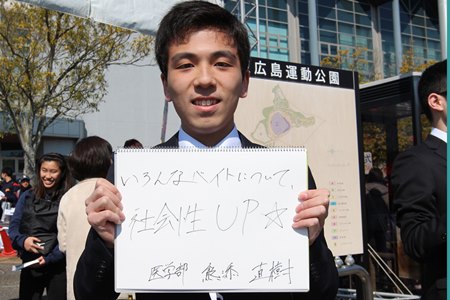 広島運動公園
いろんなバイトについて、
社会性 UP☆
医学部 直樹